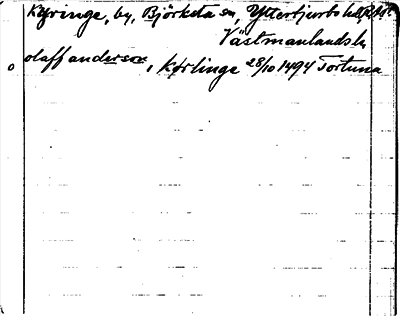 Kyringe, by, Björksta sn, Yttertjurbo hd
Västmanlands l.
olaff anderson, Kørlinge 28/10 1494 Tortuna